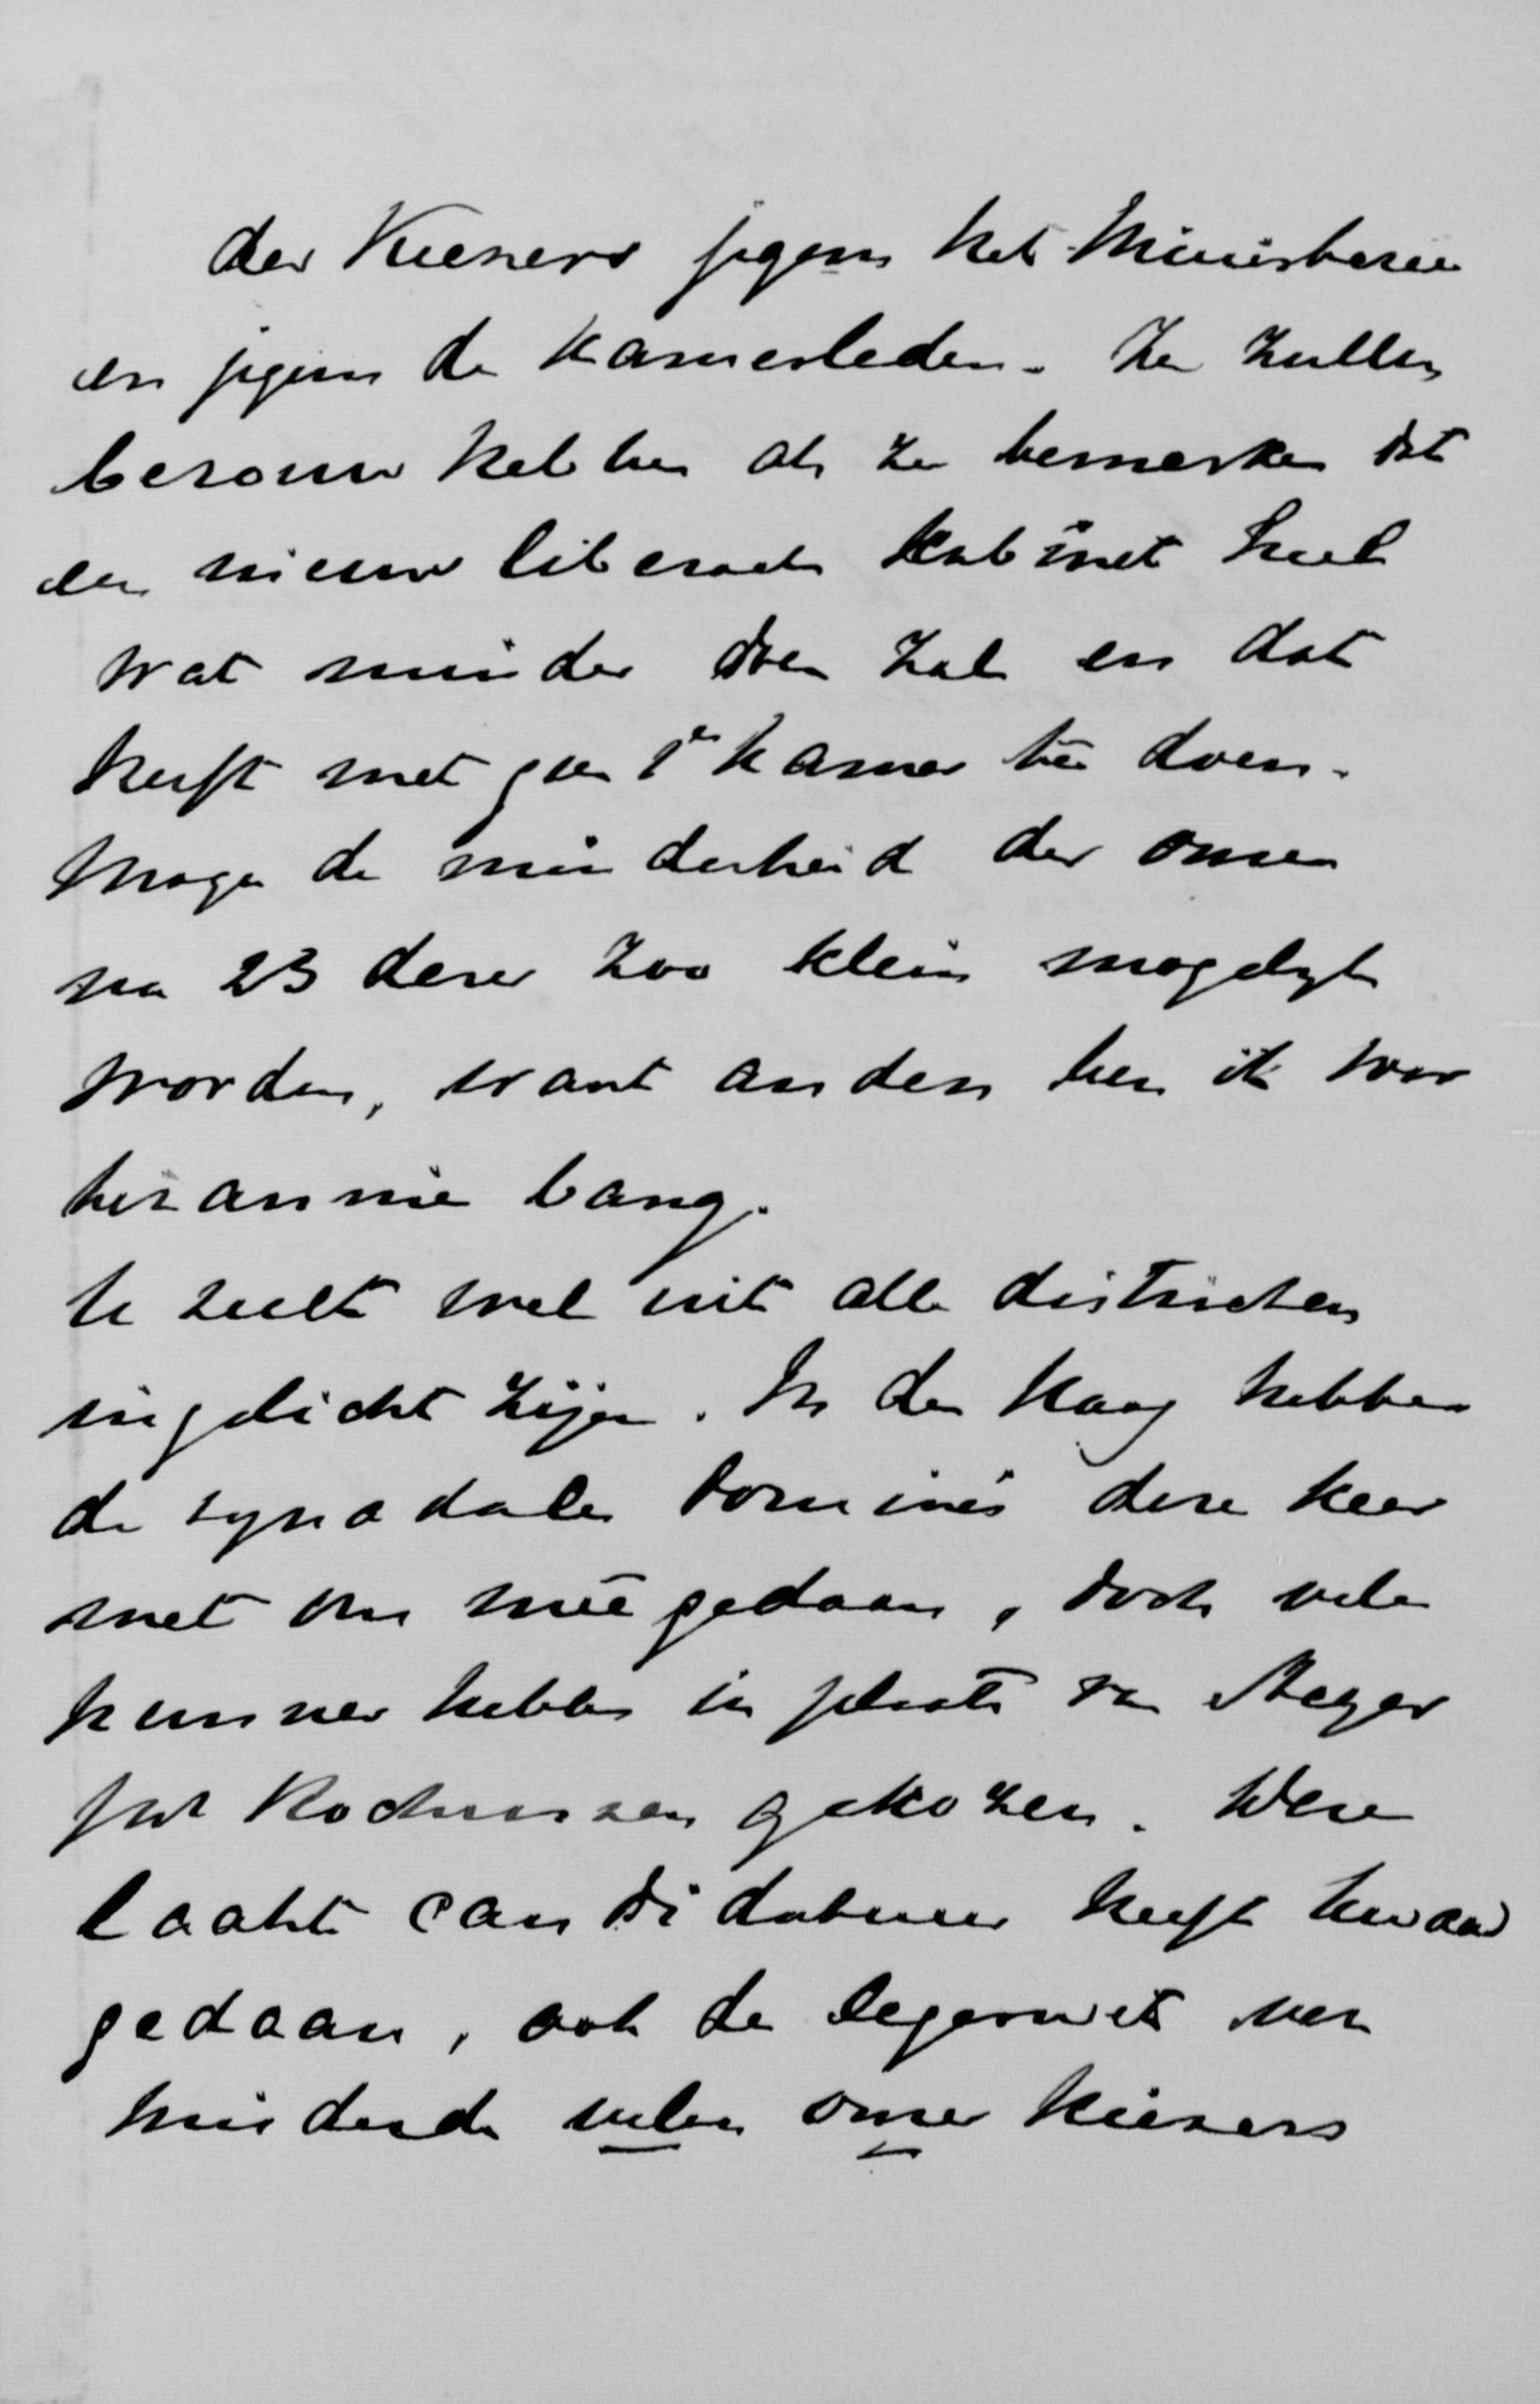 der Kiezers jegens het Ministerie
en jegens de Kamerleden. Ze zullen
berouw hebben als ze bemerken dat
een nieuw liberaal kabinet heel
wat minder doen zal en dat
heeft met geen 1e Kamer te doen.
Moge de minderheid der onzen
na 23 dezer zoo klein mogelijk
worden, want anders ben ik voor
tirannie bang.
U zult wel uit alle districten
ingelicht zijn. In den Haag hebben
de synodale dominés deze keer
met ons mee gedaan, doch vele
hunner hebben in plaats van Beyer
Rochussen gekozen. Deze
laatste candidatuur heeft kwaad
gedaan, ook de legerwet ver
minderde velen onzer kiezers